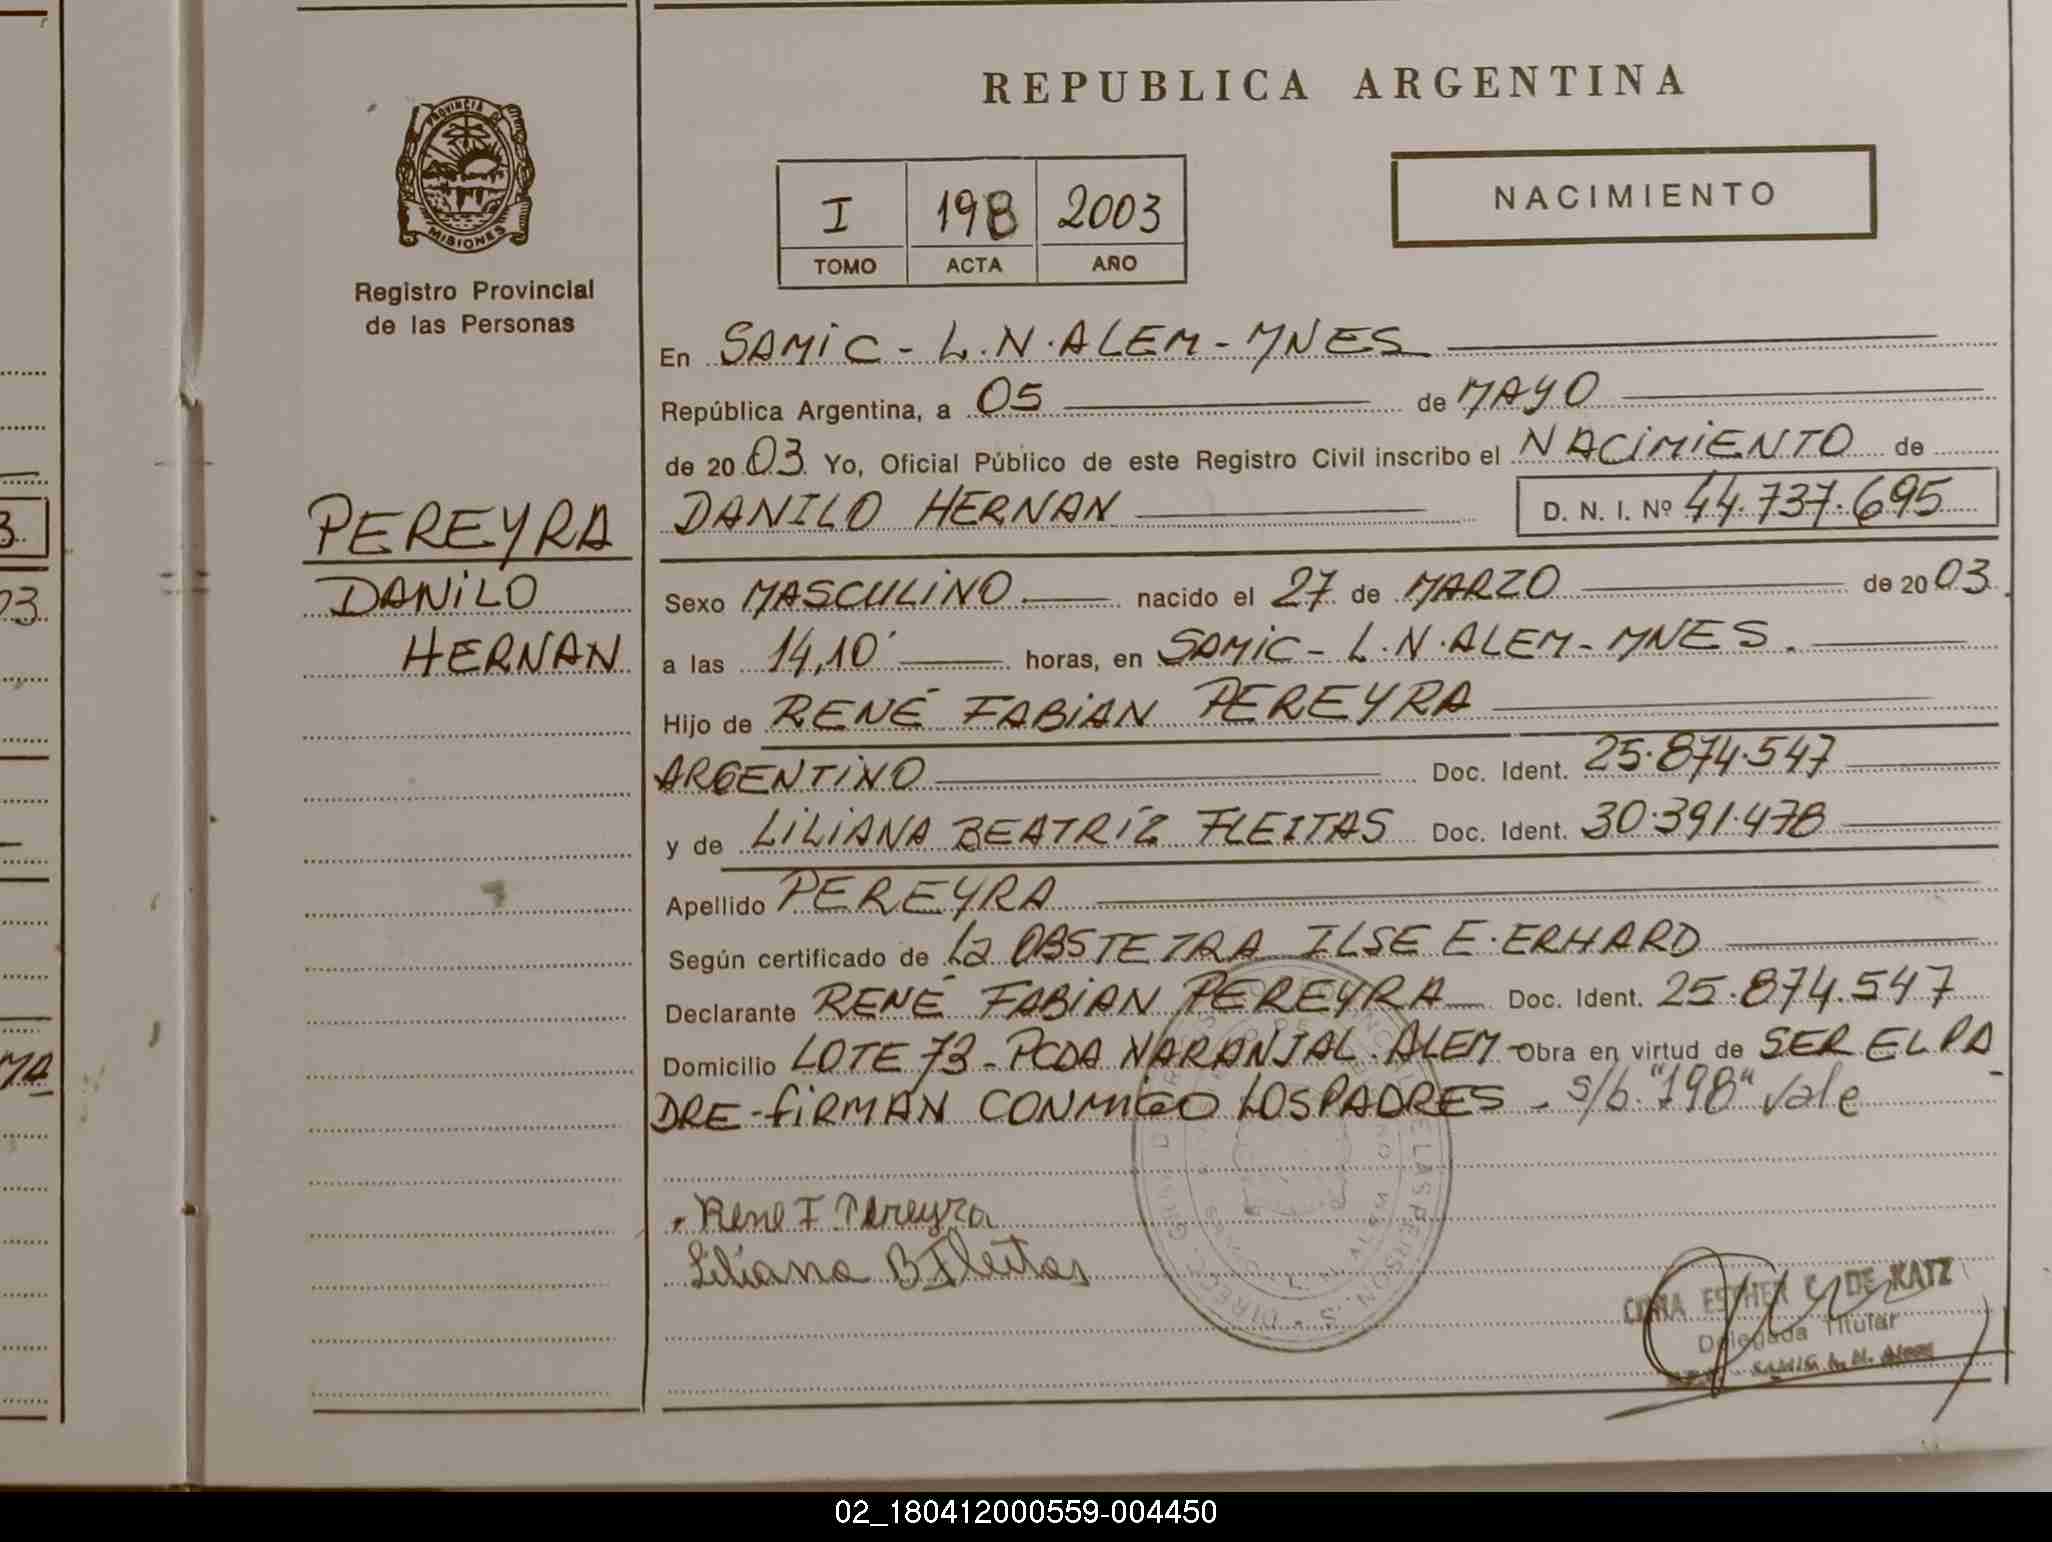 REPUBLICA ARGENTINA
PROVINCIA DE
MISIONES
Registro Provincial
de las Personas
I 198 2003
TOMO ACTA AÑO
NACIMIENTO
En SAMIC - L.N. ALEM - MNES
República Argentina, a 05 de MAYO
de 2003 Yo, Oficial Público de este Registro Civil inscribo el NACIMIENTO de
DANILO HERNAN D. N. I. Nº 44.737.695
PEREYRA
DANILO
HERNAN
Sexo MASCULINO nacido el 27 de MARZO de 2003
a las 14,10' horas, en SAMIC - L.N. ALEM - MNES.
Hijo de RENÉ FABIAN PEREYRA
ARGENTINO Doc. Ident. 25.874.547
y de LILIANA BEATRÍZ FLEITAS Doc. Ident. 30.391.478
Apellido PEREYRA
Según certificado de La OBSTETRA ILSE E. ERHARD
Declarante RENÉ FABIAN PEREYRA Doc. Ident. 25.874.547
Domicilio LOTE 73 - PCDA NARANJAL. ALEM - Obra en virtud de SER EL PA
DRE - FIRMAN CONMIGO LOS PADRES - s/b. "198" Vale
Rene F Pereyra
Liliana B Fleitas
ESTHER C. DE KATZ
Delegada Titular
3
03
MA
02_180412000559-004450